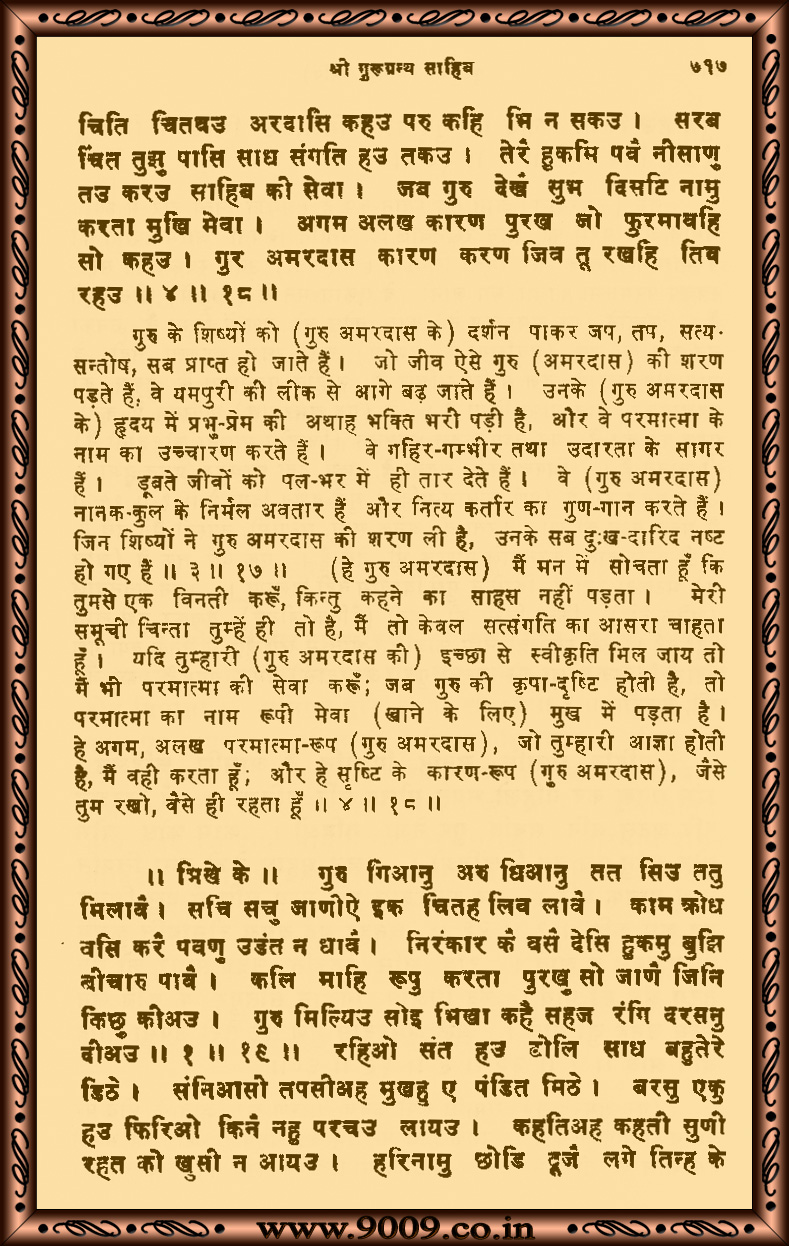 श्री गुरूग्रन्थ साहिब ७१७
चिति चितवउ अरदासि कहउ परु कहि भि न सकउ । सरब
चिंत तुझु पासि साध संगति हउ तकउ । तेरै हुकमि पवै नीसाणु
तउ करउ साहिब की सेवा । जब गुरु देखै सुभ दिसटि नामु
करता मुखि मेवा । अगम अलख कारण पुरख जो फुरमावहि
सो कहउ । गुर अमरदास कारण करण जिव तू रखहि तिव
रहउ ॥ ४ ॥ १८ ॥
गुरु के शिष्यों को (गुरु अमरदास के) दर्शन पाकर जप, तप, सत्य-
सन्तोष, सब प्राप्त हो जाते हैं । जो जीव ऐसे गुरु (अमरदास) की शरण
पड़ते हैं, वे यमपुरी की लीक से आगे बढ़ जाते हैं । उनके (गुरु अमरदास
के) हृदय में प्रभु-प्रेम की अथाह भक्ति भरी पड़ी है, और वे परमात्मा के
नाम का उच्चारण करते हैं । वे गहिर-गम्भीर तथा उदारता के सागर
हैं । डूबते जीवों को पल-भर में ही तार देते हैं । वे (गुरु अमरदास)
नानक-कुल के निर्मल अवतार हैं और नित्य कर्तार का गुण-गान करते हैं ।
जिन शिष्यों ने गुरु अमरदास की शरण ली है, उनके सब दुःख-दारिद नष्ट
हो गए हैं ॥ ३ ॥ १७ ॥ (हे गुरु अमरदास) मैं मन में सोचता हूँ कि
तुमसे एक विनती करूँ, किन्तु कहने का साहस नहीं पड़ता । मेरी
समूची चिन्ता तुम्हें ही तो है, मैं तो केवल सत्संगति का आसरा चाहता
हूँ । यदि तुम्हारी (गुरु अमरदास की) इच्छा से स्वीकृति मिल जाय तो
मैं भी परमात्मा की सेवा करूँ; जब गुरु की कृपा-दृष्टि होती है, तो
परमात्मा का नाम रूपी मेवा (खाने के लिए) मुख में पड़ता है ।
हे अगम, अलख परमात्मा-रूप (गुरु अमरदास), जो तुम्हारी आज्ञा होती
है, मैं वही करता हूँ; और हे सृष्टि के कारण-रूप (गुरु अमरदास), जैसे
तुम रखो, वैसे ही रहता हूँ ॥ ४ ॥ १८ ॥
॥ भिखे के ॥ गुरु गिआनु अरु धिआनु तत सिउ ततु
मिलावै । सचि सचु जाणीऐ इक चितह लिव लावै । काम क्रोध
वसि करै पवणु उडंत न धावै । निरंकार कै वसै देसि हुकमु बुझि
बीचारु पावै । कलि माहि रूपु करता पुरखु सो जाणै जिनि
किछु कीअउ । गुरु मिल्यिउ सोइ भिखा कहै सहज रंगि दरसनु
दीअउ ॥ १ ॥ १९ ॥ रहिओ संत हउ टोलि साध बहुतेरे
डिठे । संनिआसी तपसीअह मुखहु ए पंडित मिठे । बरसु एकु
हउ फिरिओ किनै नहु परचउ लायउ । कहतिअह कहती सुणी
रहत को खुसी न आयउ । हरिनामु छोडि दूजै लगे तिन्ह के
www.9009.co.in